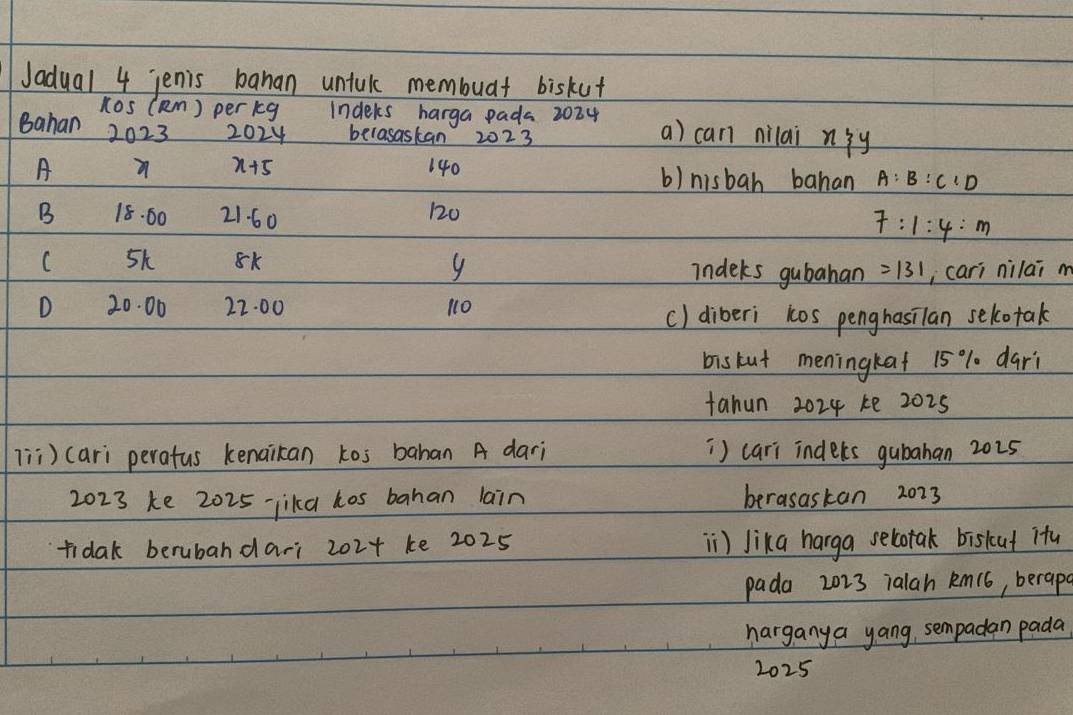 Jadual 4 jenis bahan untuk membuat biskut
Bahan Kos (RM) per kg Indeks harga pada 2024
2023 2024 berasaskan 2023
A x x+5 140
B 18.00 21.60 120
C 5k 8k y
D 20.00 22.00 110
a) cari nilai x & y
b) nisbah bahan A:B:C:D
7:1:4:m
indeks gubahan = 131, cari nilai m
c) diberi kos penghasilan sekotak
biskut meningkat 15% dari
tahun 2024 ke 2025
i) cari indeks gubahan 2025
berasaskan 2023
ii) Jika harga sekotak biskut itu
pada 2023 ialah RM16, berapa
harganya yang sempadan pada
2025
iii) Cari peratus kenaikan kos bahan A dari
2023 ke 2025 jika kos bahan lain
tidak berubah dari 2024 ke 2025